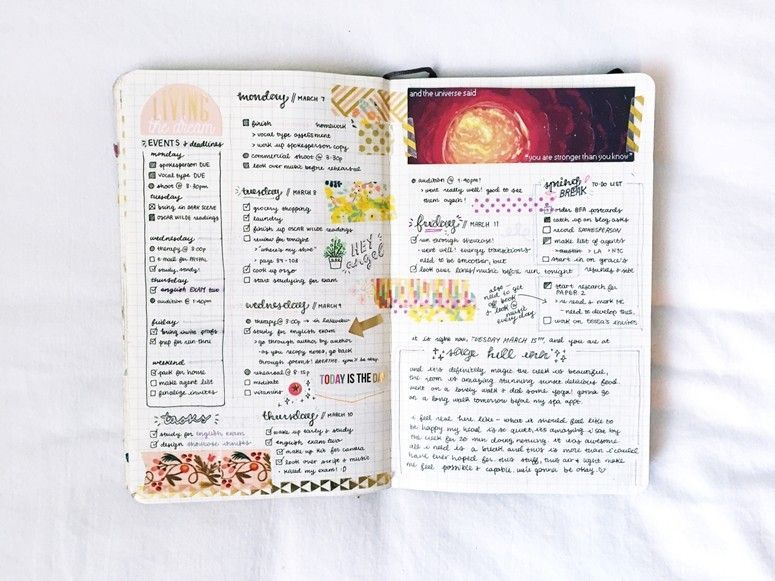 LIVING
the dream
EVENTS & deadlines
monday
spokesperson DUE
vocal type DUE
shoot @ 8:30pm
tuesday
bring in dark scene
OSCAR WILDE readings
wednesday
therapy @ 3:00p
e-mail
study, study!
thursday
english EXAM two
audition @ 1:40pm
friday
bring invite proofs
prep for run thru
weekend
pack for home
make agent list
finalize invites
tasks
study for english exam
design showcase invites
monday // MARCH 7
finish homework
> vocal type assessment
> work up spokesperson copy
commercial shoot @ 8:30p
look over music before rehearsal
tuesday // MARCH 8
grocery shopping
laundry
finish up OSCAR WILDE readings
review for tonight
> "where's my shoe"
> pages 89-108
cook up orzo
start studying for exam
HEY
angel
wednesday // MARCH 9
therapy @ 3:00p → in
study for english exam
> go through author by author
→ as you recopy notes, go back
through poems! BREATHE. you'll be okay
rehearsal @ 8:15p
meditate
vitamins
TODAY IS THE DAY
thursday // MARCH 10
wake up early & study
english exam two
make up kit for camera
look over script & music
killed my exam! :D
and the universe said
"you are stronger than you know"
audition @ 1:40pm!
went really well! good to see
them again!
friday // MARCH 11
run through showcase!
went well! energy, transitions
need to be smoother, but
look over lines/music before run tonight
also
need to get
off book
& look @
music
every day
spring
BREAK TO-DO LIST
order BFA postcards
catch up on blog asks
record SPOKESPERSON
make list of agents
> LA > NYC
start in on grace's
resumes & site
start research for
PAPER 2
> read & mark
- need to develop this.
work on tessa's invites
it is right now, TUESDAY MARCH 15TH, and you are at
sage hill inn
and it's definitely magic. the view is beautiful,
the room is amazing. stunning sunset. delicious food.
went on a lovely walk & did some yoga! gonna go
on a long walk tomorrow before my spa appt.
i feel real here. like - what it should feel like to
be happy. my head is so quiet. it's amazing. i sat by
the creek for 20 min doing nothing. it was awesome.
all i need is a break and this is more than i could
have ever hoped for. this stuff, this air & light make
me feel possible & capable. we're gonna be okay. ♡